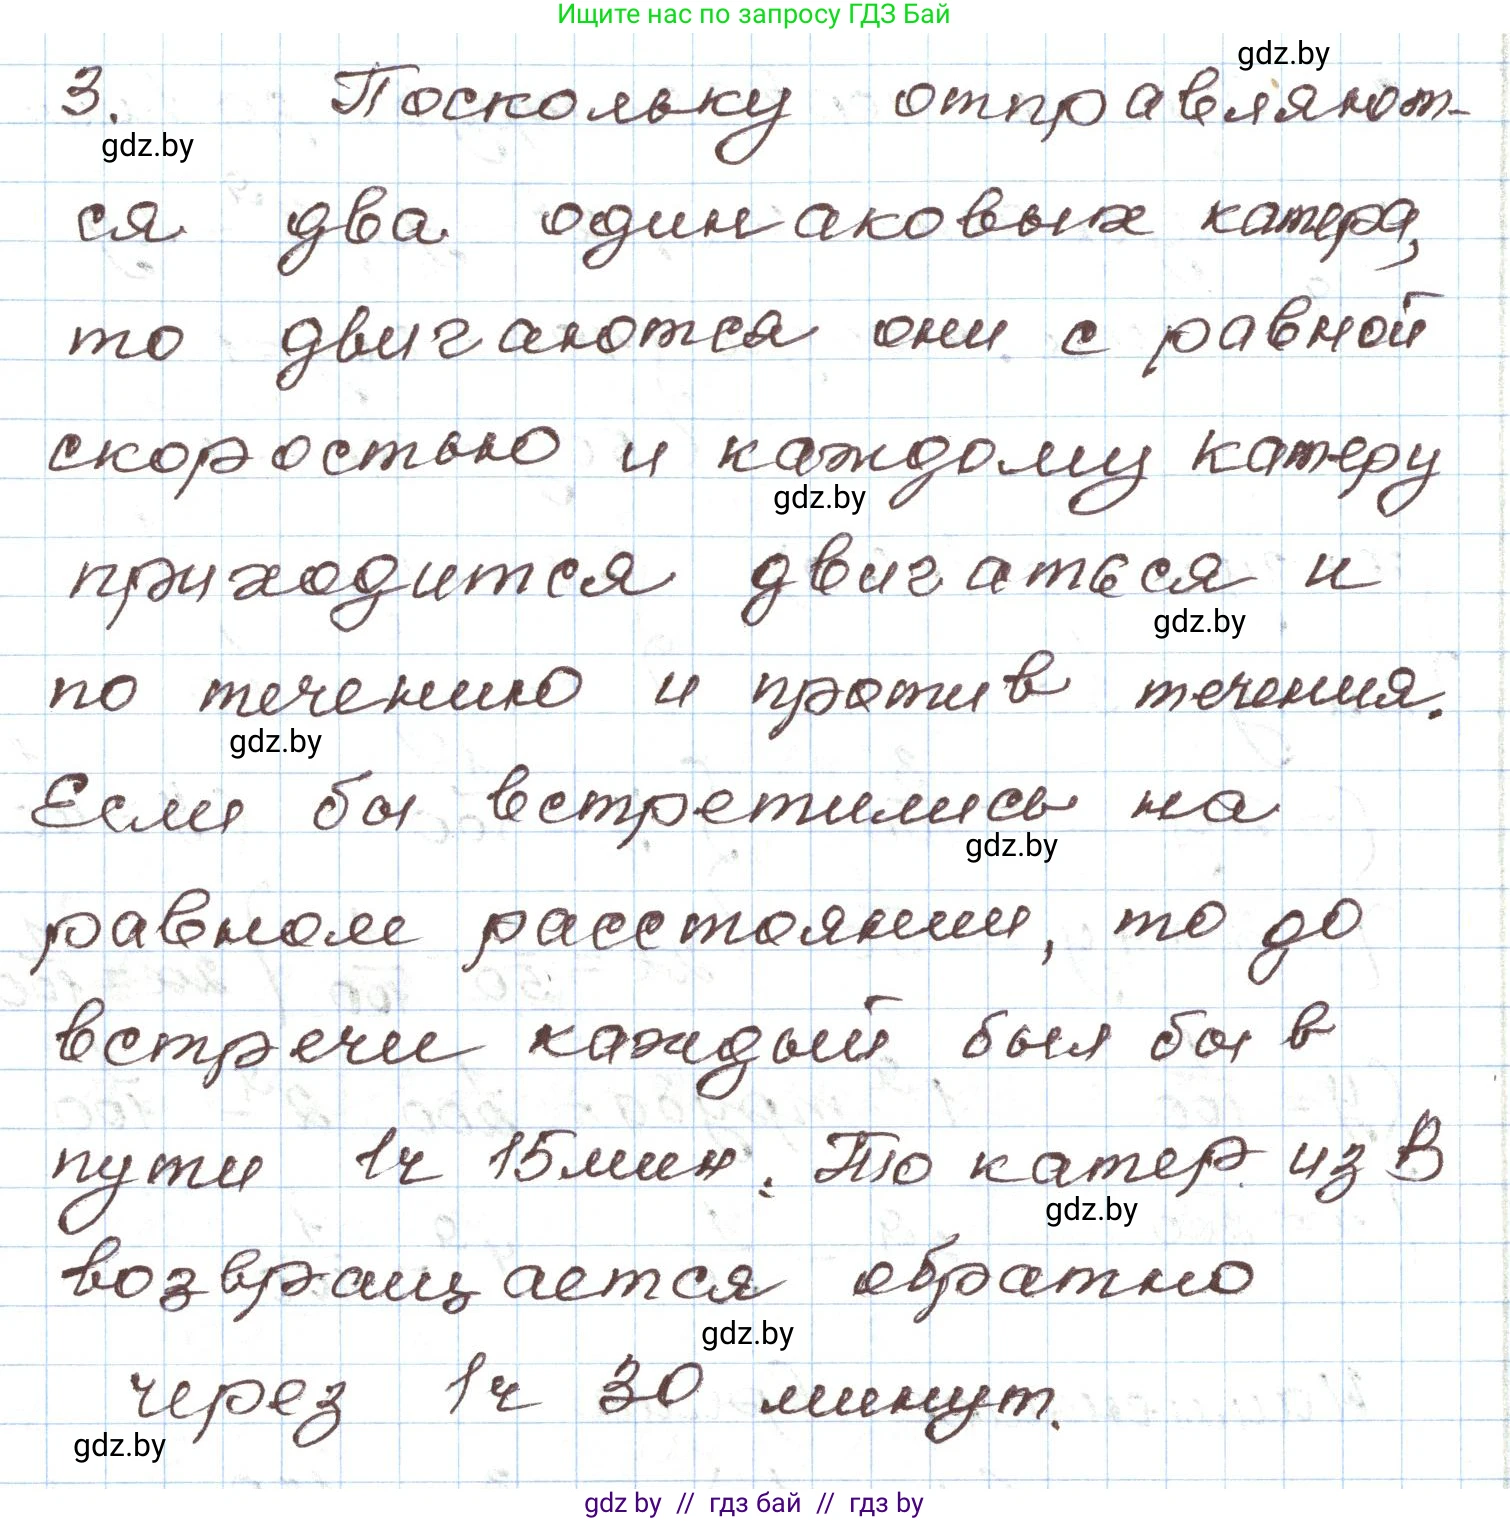 Ищите нас по запросу ГДЗ Бай
gdz.by
3. Поскольку отправляют-
gdz.by
ся два одинаковых катера,
то двигаются они с равной
скоростью и каждому катеру
gdz.by
приходится двигаться и
gdz.by
по течению и против течения.
gdz.by
Если бы встретились на
gdz.by
равном расстоянии, то до
встречи каждый был бы в
пути 1ч 15мин. То катер из В
gdz.by
возвращается обратно
gdz.by
через 1ч 30 минут.
gdz.by
gdz by // гдз бай // гдз by